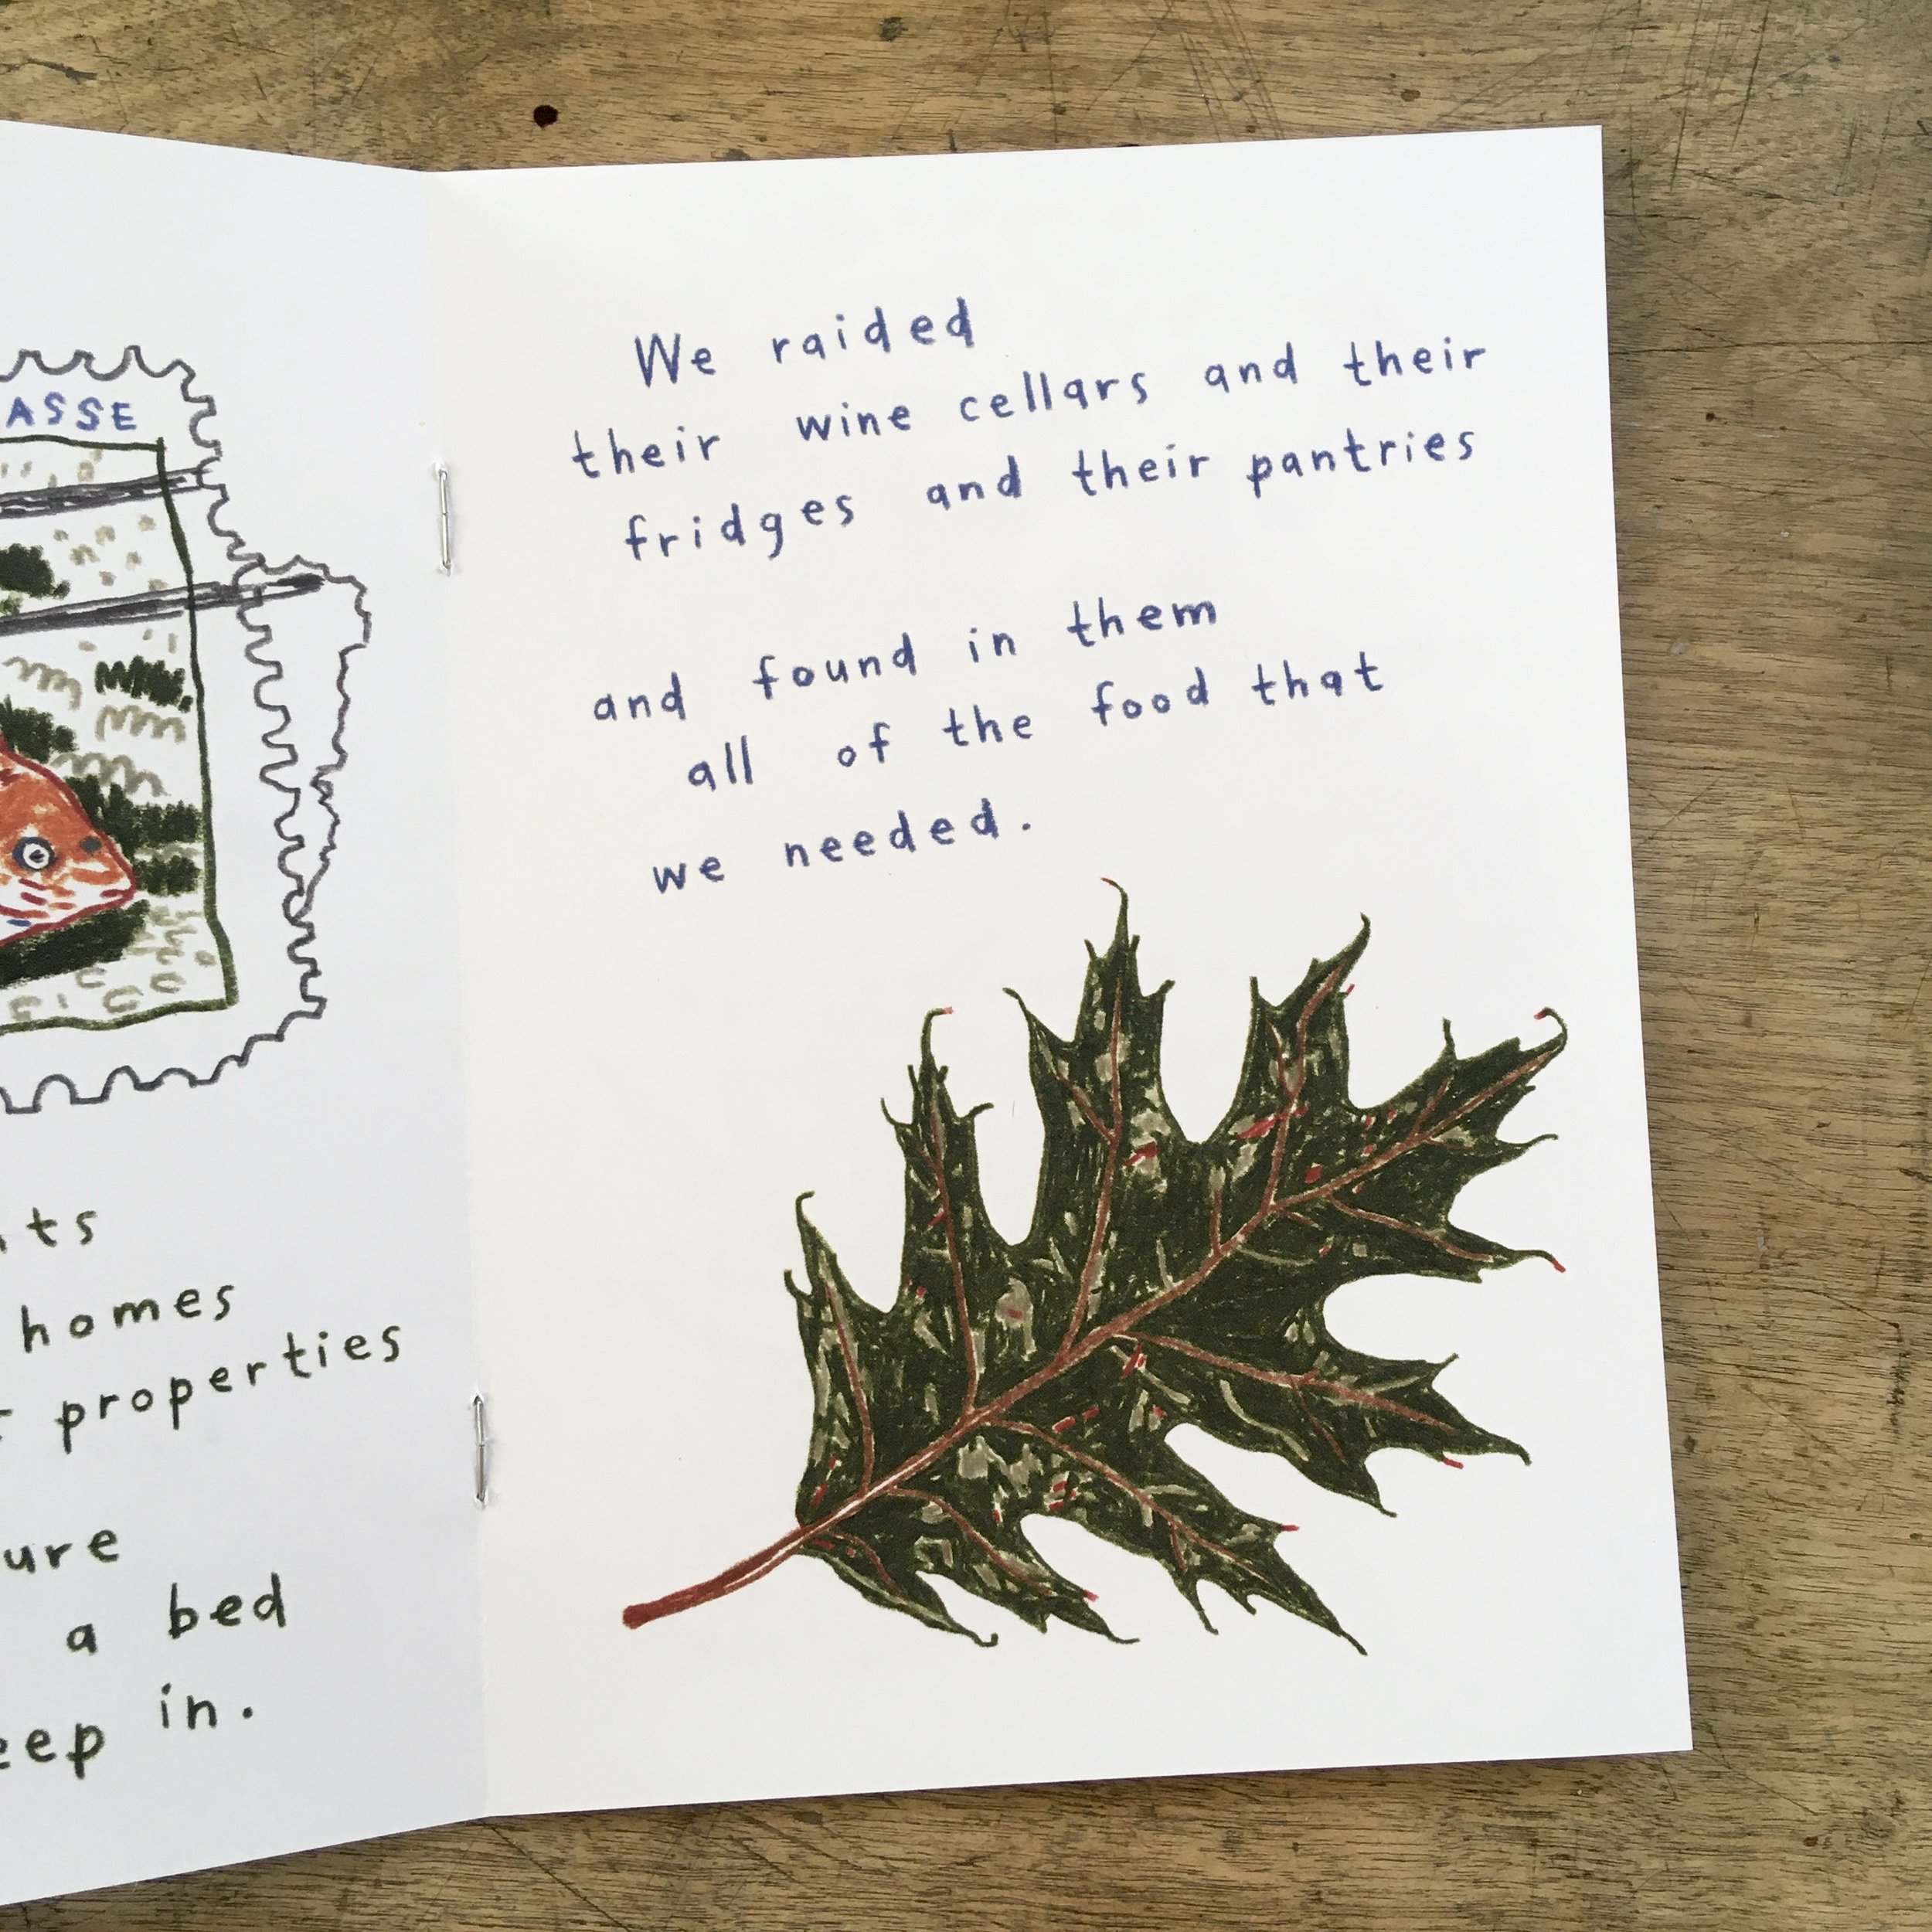 ASSE
homes
properties
a bed
in.
We raided
their wine cellars and their
fridges and their pantries
and found in them
all of the food that
we needed.